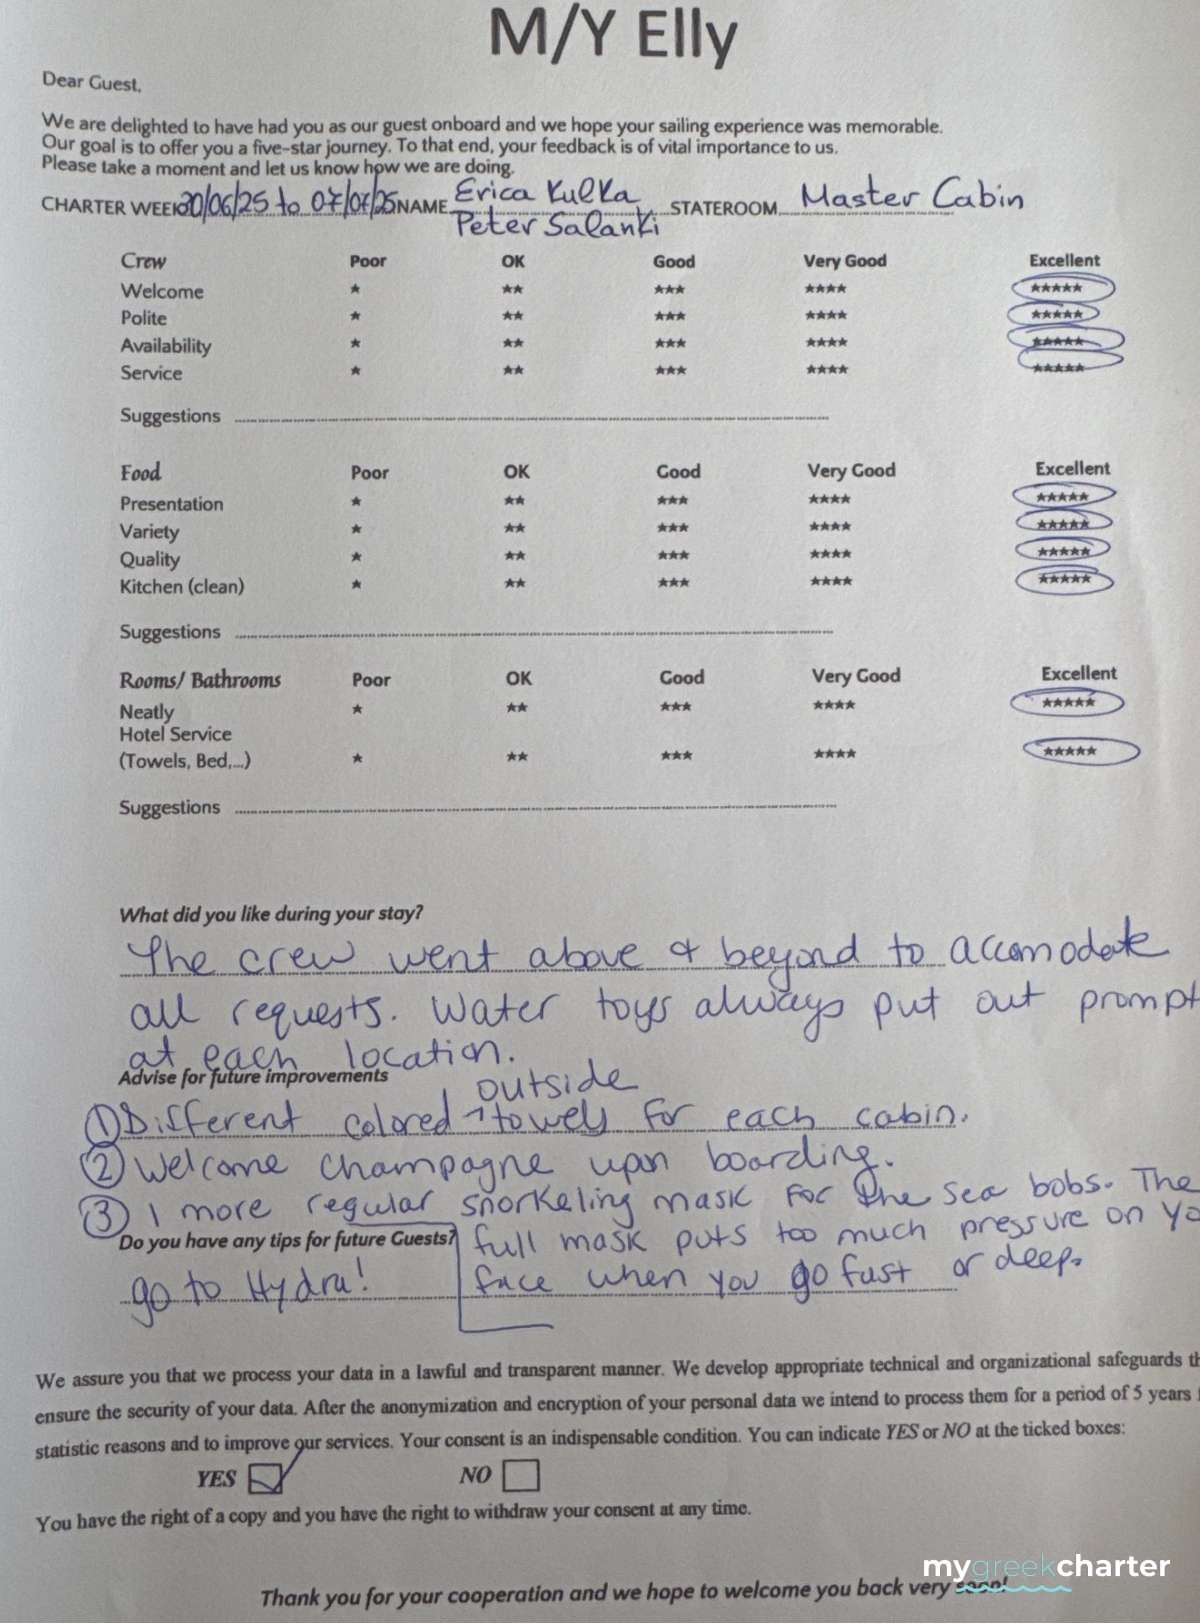 M/Y Elly
Dear Guest,
We are delighted to have had you as our guest onboard and we hope your sailing experience was memorable.
Our goal is to offer you a five-star journey. To that end, your feedback is of vital importance to us.
Please take a moment and let us know how we are doing.
CHARTER WEEK 30/06/25 to 07/07/25 NAME Erica Kulka STATEROOM Master Cabin
Peter Salanki
Crew Poor OK Good Very Good Excellent
Welcome ★ ★★ ★★★ ★★★★ ★★★★★
Polite ★ ★★ ★★★ ★★★★ ★★★★★
Availability ★ ★★ ★★★ ★★★★ ★★★★★
Service ★ ★★ ★★★ ★★★★ ★★★★★
Suggestions
Food Poor OK Good Very Good Excellent
Presentation ★ ★★ ★★★ ★★★★ ★★★★★
Variety ★ ★★ ★★★ ★★★★ ★★★★★
Quality ★ ★★ ★★★ ★★★★ ★★★★★
Kitchen (clean) ★ ★★ ★★★ ★★★★ ★★★★★
Suggestions
Rooms/ Bathrooms Poor OK Good Very Good Excellent
Neatly ★ ★★ ★★★ ★★★★ ★★★★★
Hotel Service
(Towels, Bed,...) ★ ★★ ★★★ ★★★★ ★★★★★
Suggestions
What did you like during your stay?
The crew went above & beyond to accomodate
all requests. Water toys always put out prompt
at each location.
Advise for future improvements
outside
① Different colored ^ towels for each cabin.
② Welcome champagne upon boarding.
③ 1 more regular snorkeling mask for the sea bobs. The
Do you have any tips for future Guests? full mask puts too much pressure on yo
go to Hydra! face when you go fast or deep.
We assure you that we process your data in a lawful and transparent manner. We develop appropriate technical and organizational safeguards th
ensure the security of your data. After the anonymization and encryption of your personal data we intend to process them for a period of 5 years
statistic reasons and to improve our services. Your consent is an indispensable condition. You can indicate YES or NO at the ticked boxes:
YES NO
You have the right of a copy and you have the right to withdraw your consent at any time.
mygreekcharter
Thank you for your cooperation and we hope to welcome you back very soon!